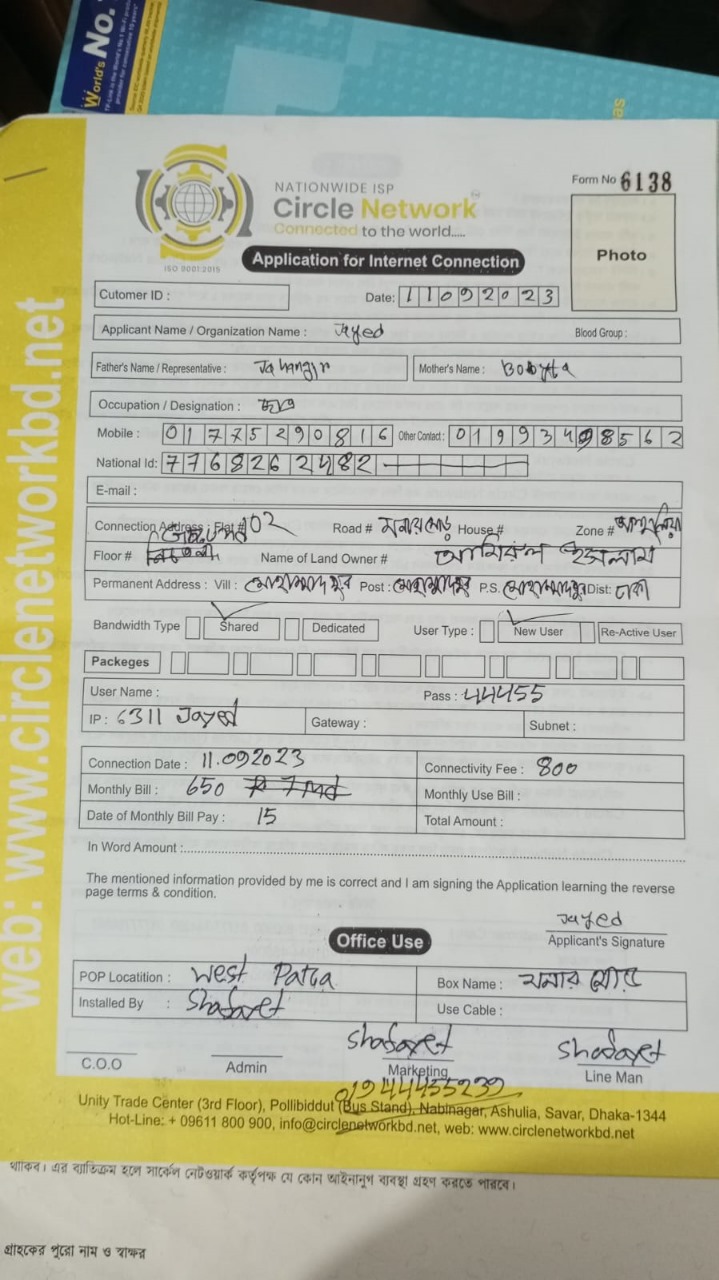 World's No.
as
NATIONWIDE ISP
Circle Network
Connected to the world.....
ISO 9001:2015
Form No 6138
Photo
Application for Internet Connection
Cutomer ID :
Date: 11092023
Applicant Name / Organization Name : Jayed Blood Group :
Father's Name / Representative : Jahangir Mother's Name :
Occupation / Designation :
Mobile : 01775290816 Other Contact : 01993498562
National Id: 7768262482
E-mail :
Connection Address : Flat # 102 Road # House # Zone #
Floor # Name of Land Owner # আমিরুল ইসলাম
Permanent Address : Vill : মোহাম্মাদপুর Post : মোহাম্মাদপুর P.S. মোহাম্মাদপুর Dist: ঢাকা
Bandwidth Type Shared Dedicated User Type : New User Re-Active User
Packeges
User Name : Pass : 44455
IP : 6311 Jayed Gateway : Subnet :
Connection Date : 11.092023 Connectivity Fee : 800
Monthly Bill : 650 Monthly Use Bill :
Date of Monthly Bill Pay : 15 Total Amount :
In Word Amount :
The mentioned information provided by me is correct and I am signing the Application learning the reverse
page terms & condition.
Jayed
Applicant's Signature
Office Use
POP Locatition : West Box Name :
Installed By : Shadayet Use Cable :
Shadayet Shadayet
C.O.O Admin Marketing Line Man
01944455239
Unity Trade Center (3rd Floor), Pollibiddut (Bus Stand), Nabinagar, Ashulia, Savar, Dhaka-1344
Hot-Line: + 09611 800 900, info@circlenetworkbd.net, web: www.circlenetworkbd.net
web: www.circlenetworkbd.net
থাকিব। এর ব্যতিক্রম হলে সার্কেল নেটওয়ার্ক কর্তৃপক্ষ যে কোন আইনানুগ ব্যবস্থা গ্রহণ করতে পারবে।
গ্রাহকের পুরো নাম ও স্বাক্ষর